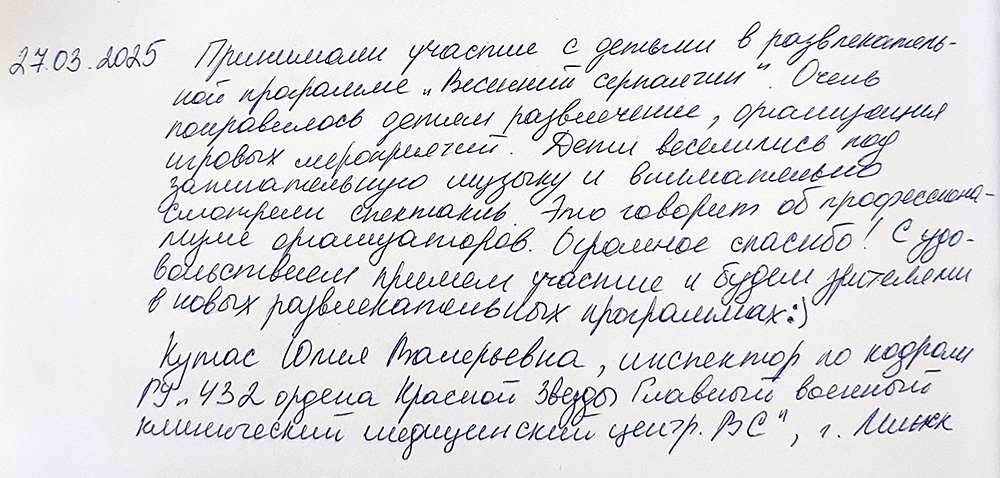 27.03.2025 Принимали участие с детьми в развлекатель-
ной программе „Весенний серпантин". Очень
понравилось детям развлечение, организация
игровых мероприятий. Дети веселились под
зажигательную музыку и внимательно
смотрели спектакль. Это говорит об профессиона-
лизме организаторов. Огромное спасибо! С удо-
вольствием примем участие и будем зрителями
в новых развлекательных программах:)
Кутас Юлия Валерьевна, инспектор по кадрам
РУ„432 ордена Красной Звезды Главный военный
клинический медицинский центр ВС", г. Минск